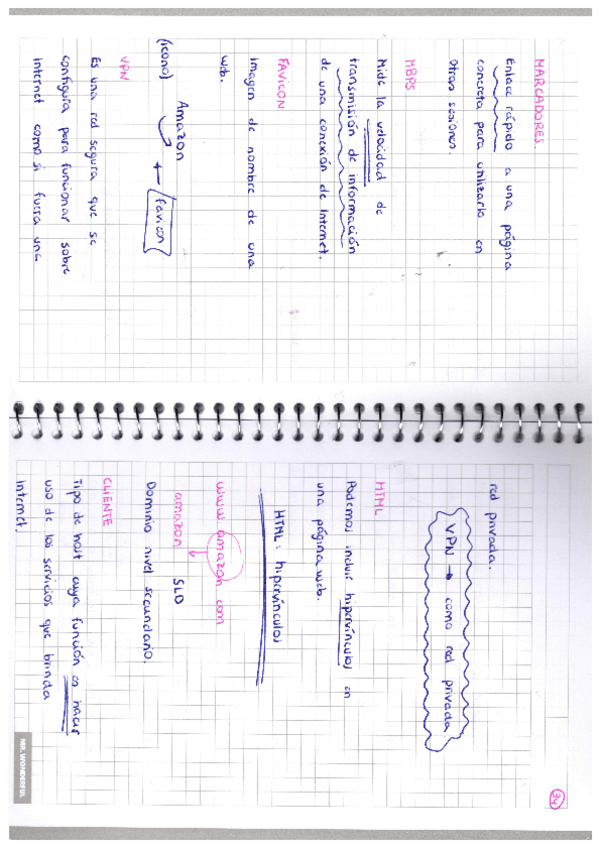 MARCADORES.
Enlace rápido a una página
concreta para utilizarla en
otras sesiones.
MBPS
Mide la velocidad de
transmisión de información
de una conexión de Internet.
FAVICON
Imagen de nombre de una
web.
Amazon
(icono) ← favicon
VPN
Es una red segura que se
configura para funcionar sobre
internet como si fuera una
34
red privada.
VPN → como red privada
HTML
Podemos incluir hipervínculos en
una página web.
HTML: hipervínculos
www.amazon.com
amazon SLD
Dominio nivel secundario.
CLIENTE
Tipo de host cuya función es hacer
uso de los servicios que brinda
internet.
MR. WONDERFUL